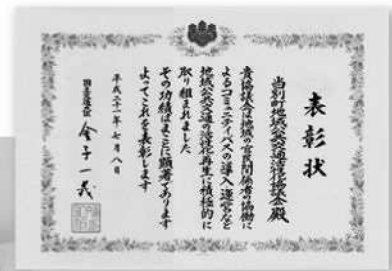 表彰状
当別町地域公共交通活性化協議会殿
貴協議会は地域の官民関係者の協働に
よるコミュニティバスの導入運営など
地域公共交通の活性化再生に積極的に
取り組まれました
その功績はまことに顕著であります
よってこれを表彰します
平成二十一年七月八日
国土交通大臣 金子一義